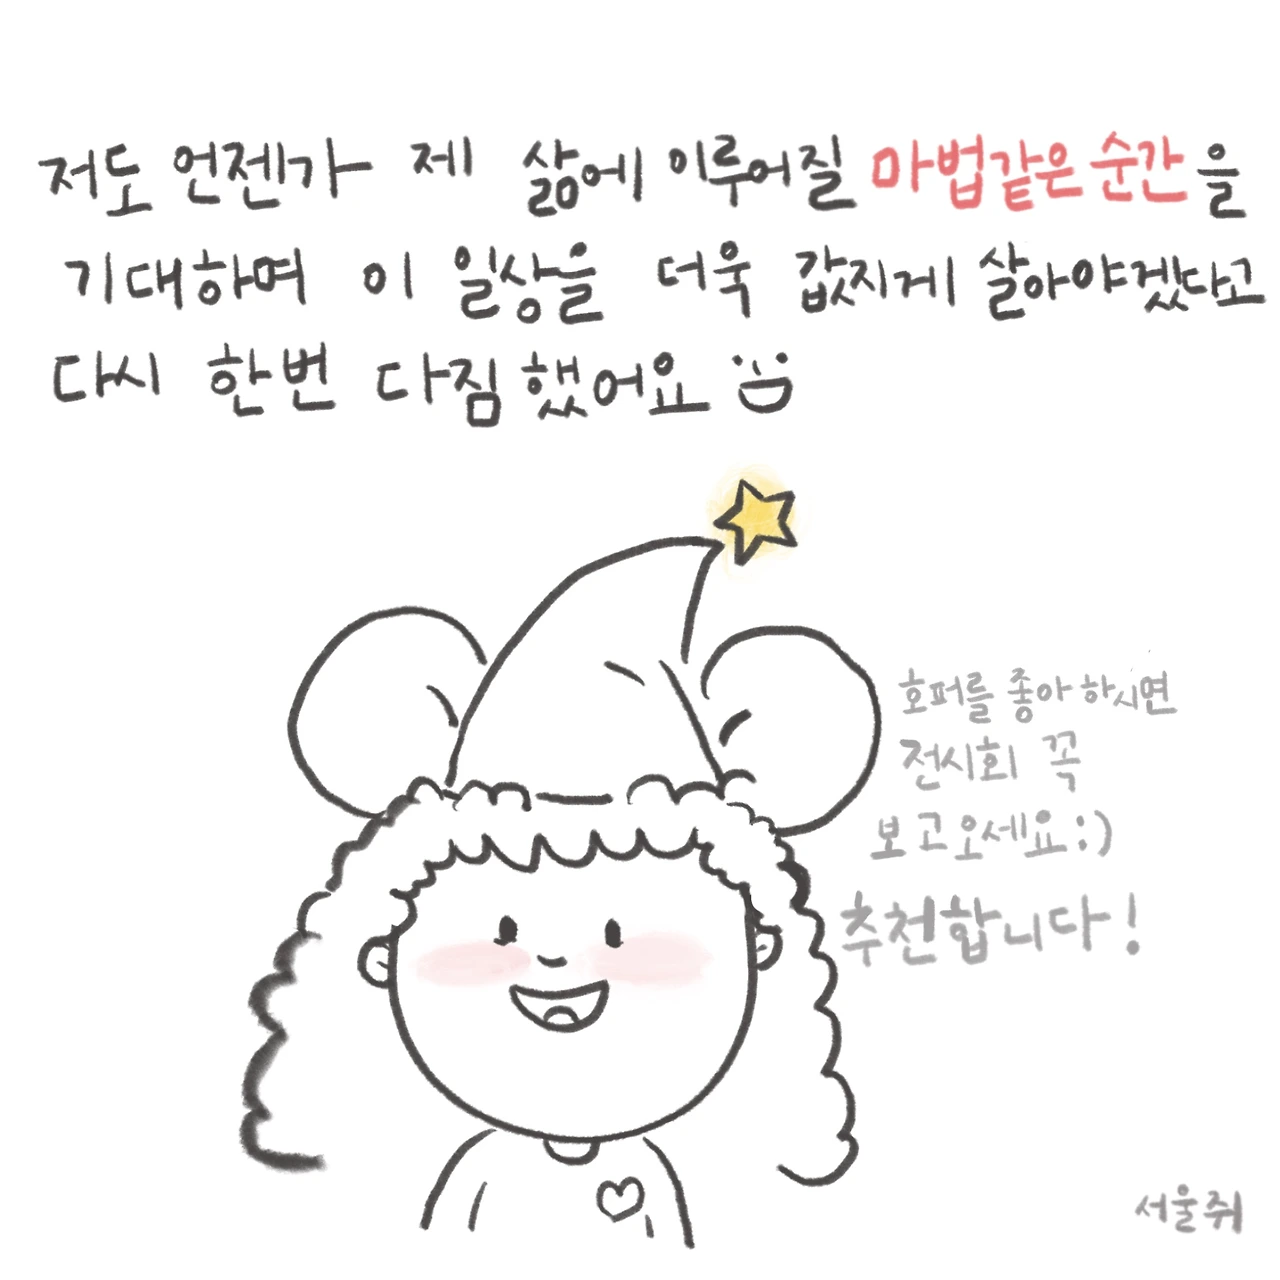 저도 언젠가 제 삶에 이루어질 마법같은 순간을
기대하며 이 일상을 더욱 값지게 살아야겠다고
다시 한번 다짐했어요
호퍼를 좋아하시면
전시회 꼭
보고오세요:)
추천합니다!
서울쥐